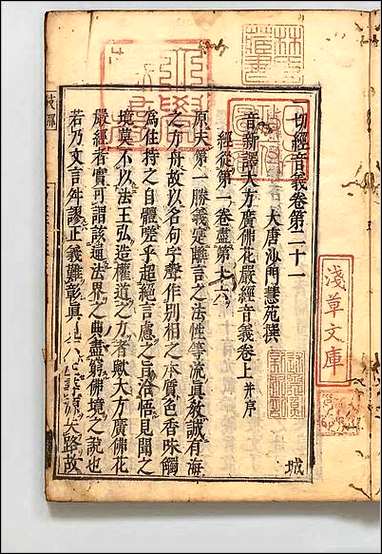 一切經音義卷第二十一
大唐沙門慧苑撰
音新譯大方廣佛花嚴經音義卷上并序
經從第一卷盡第十六
原夫第一勝義寔離言之法性等流真教誠有海
之方舟故以名句字聲作別相之本質色香味觸
為住持之自體嗟乎超絕言慮之旨洽悟見聞之
境莫不以法王弘造權道之力者歟大方廣佛花
嚴經者實可謂該通法界之典盡窮佛境之說也
若乃文言舛謬正義難彰真
失路故
城
淺草文庫